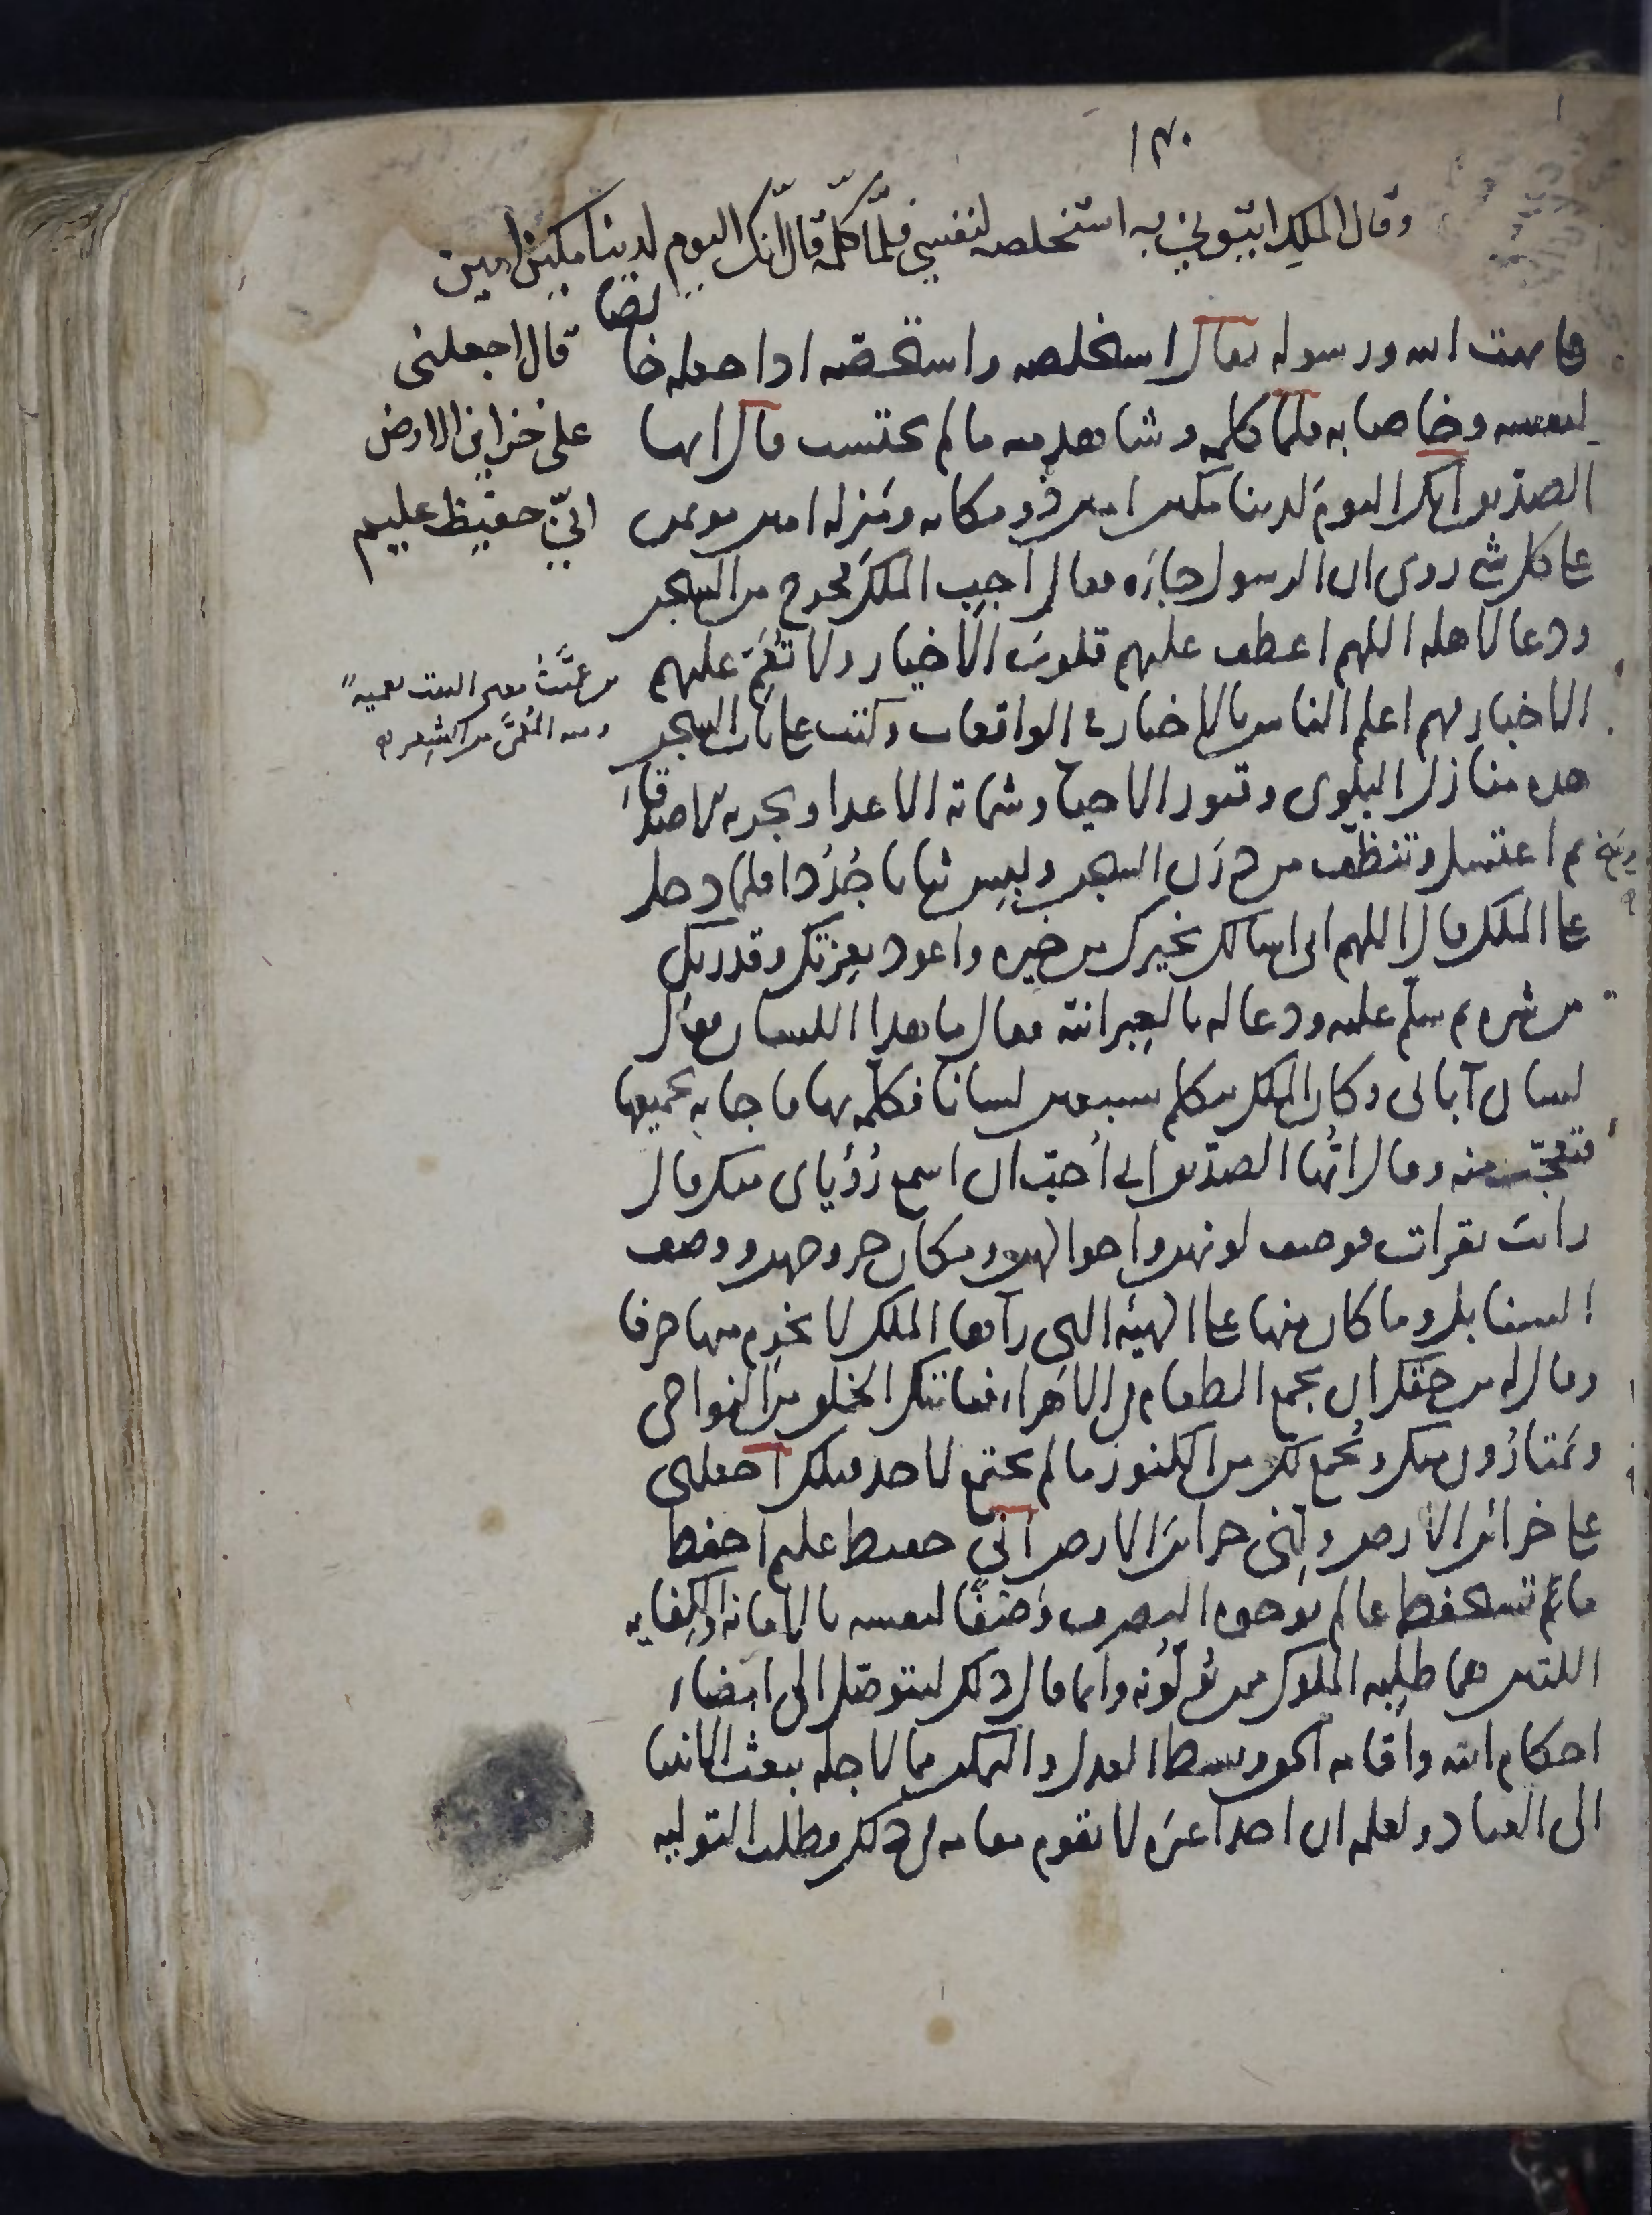 ١٣٠
وقال الملك ايتوني به استخلصه لنفسي فلما كلمه قال انك اليوم لدينا مكين امين
قال اجعلني
على خزاين الارض
اني حفيظ عليم
فيما بهت الله ورسوله يقال استخلصه واستخصه اذا جعله خالصا
لنفسه وخاصا به فلما كلمه وشاهد منه ما لم يحتسب قال ايها
الصديق انك اليوم لدينا مكين امين ذو مكانه ومنزله امين موتمن
على كل شي روى ان الرسول جاءه فقال اجب الملك فخرج من السجن
ودعا لاهله اللهم اعطف عليهم قلوب الاخيار ولا تعم عليهم
من عميت معنى البيت تعمية
ومنه المعمى من الشعر
الاخبار فهم اعلم الناس بالاخبار في الواقعات وكتب على باب السجن
هذه منازل البلوى وقبور الاحيا وشماتة الاعدا وتجربة الاصدقاء
ثم اغتسل وتنظف من درن السجن ولبس ثيابا جددا فلما دخل
على الملك قال اللهم اني اسالك بخيرك من خيره واعوذ بعزتك وقدرتك
من شره ثم سلم عليه ودعا له بالعبرانية فقال ما هذا اللسان فقال
لسان آبائي وكان الملك يتكلم بسبعين لسانا فكلمه بها فاجابه بجميعها
فتعجب منه وقال ايها الصديق اني احب ان اسمع رؤياي منك قال
رايت بقرات فوصف لونهن واحوالهن ومكان خروجهن ووصف
السنابل وما كان منها على الهيئة التي رآها الملك لا يخرم منها حرفا
وقال له من حقك ان تجمع الطعام في الاهراء فياتيك الخلق من النواحي
ويمتارون منك ويجمع لك من الكنوز ما لم يجتمع لاحد قبلك اجعلني
على خزائن الارض ولني خزائن الارض اني حفيظ عليم احفظ
ما تستحفظ عالم بوجوه التصرف وصفا لنفسه بالامانة والكفاية
اللتين هما طلبة الملوك ممن يولونه وانما قال ذلك ليتوصل الى امضاء
احكام الله واقامة الحق وبسط العدل والتمكن مما لاجله يبعث الانبيا
الى العباد ولعلمه ان احدا غيره لا يقوم مقامه في ذلك فطلب التولية